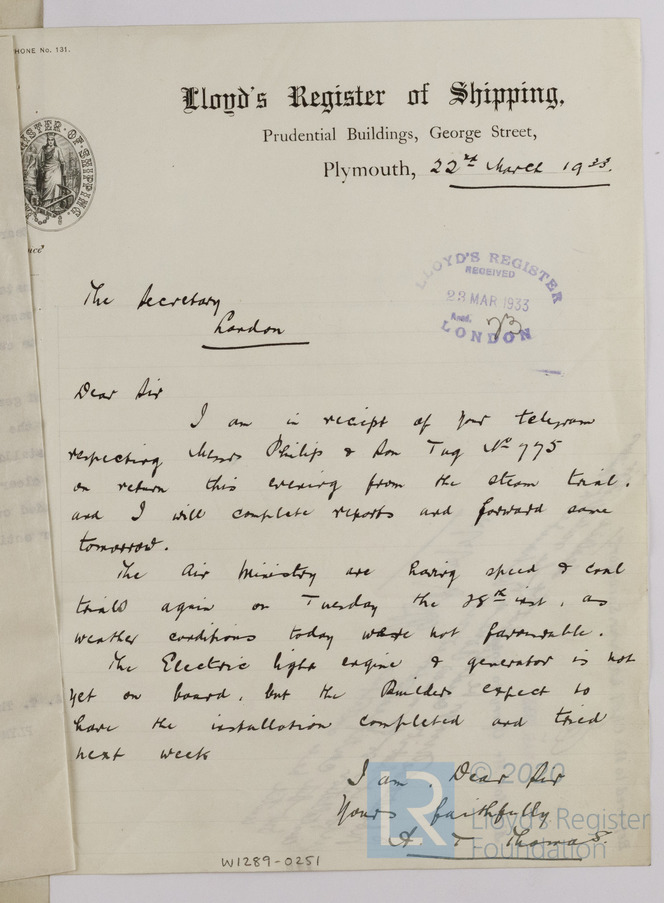 HONE No. 131.
Lloyd's Register of Shipping,
Prudential Buildings, George Street,
Plymouth, 22nd March 1933.
REGISTER OF SHIPPING
LLOYD'S REGISTER
RECEIVED
23 MAR 1933
LONDON
The Secretary
London
Dear Sir
I am in receipt of your telegram
respecting Messrs Philip & Son Tug No 775
on return this evening from the steam trial,
and I will complete reports and forward same
tomorrow.
The Air Ministry are having speed & coal
trials again on Tuesday the 28th inst, as
weather conditions today were not favourable.
The Electric light engine & generator is not
yet on board, but the Builders expect to
have the installation completed and tried
next week
I am, Dear Sir
Yours faithfully
A. T. Thomas.
© 2020
LR
Lloyd's Register
Foundation
W1289-0251